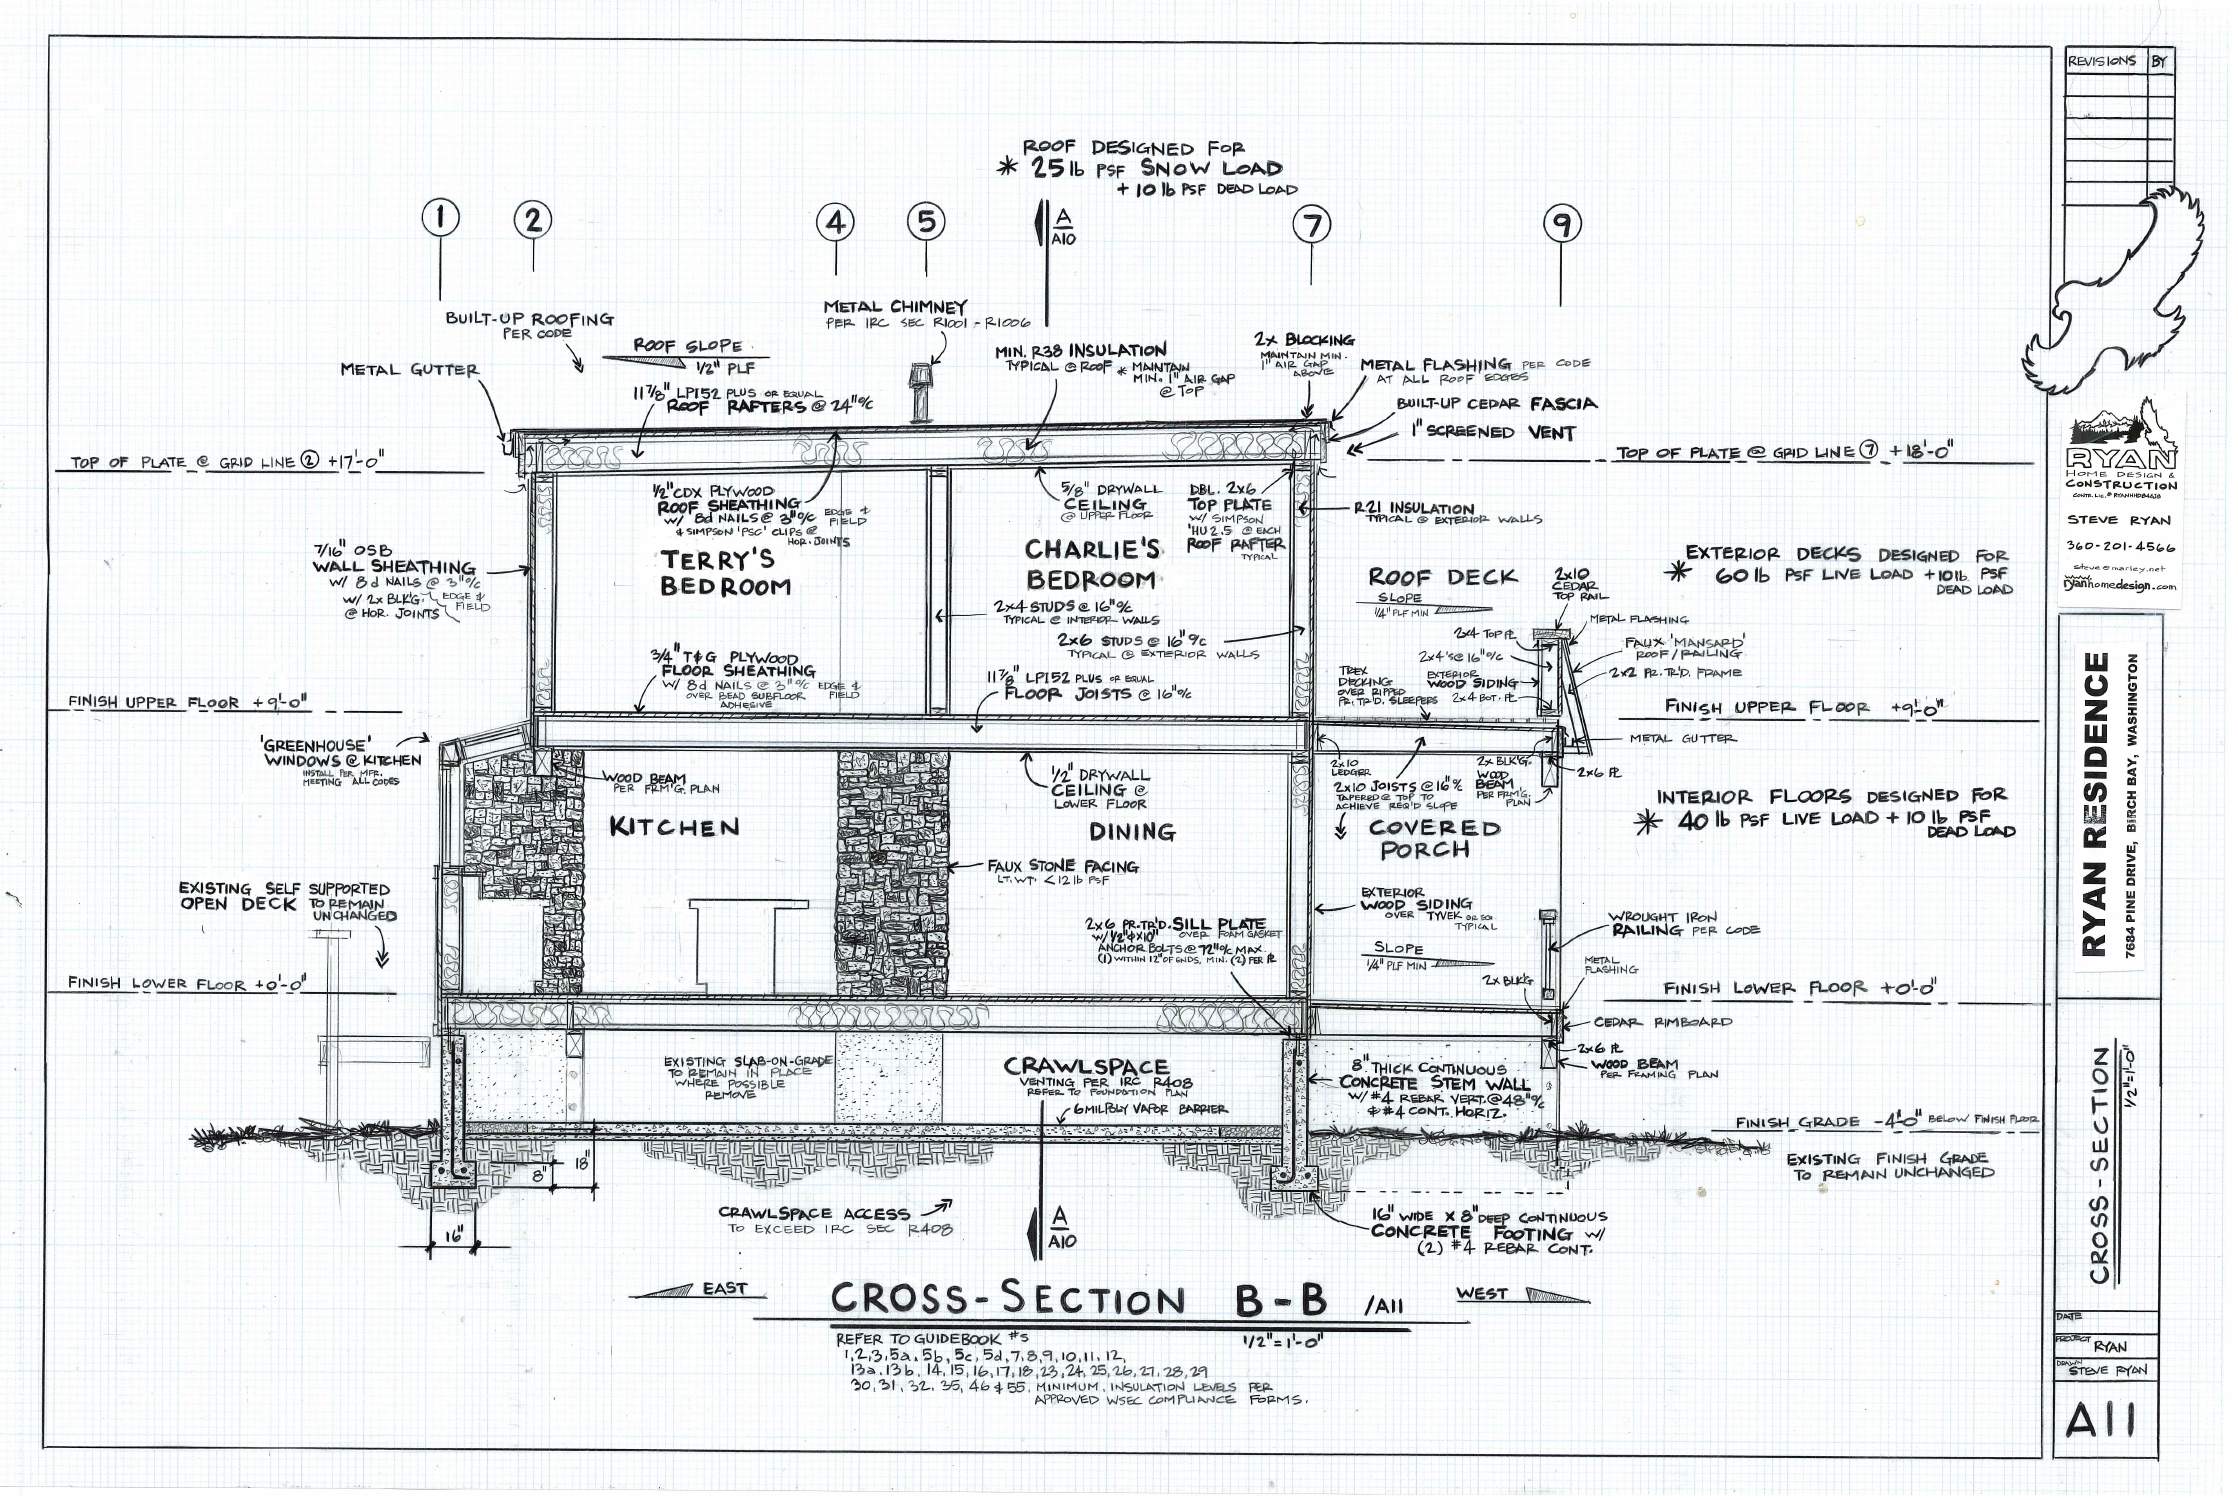 REVISIONS BY
ROOF DESIGNED FOR
* 25 lb PSF SNOW LOAD
+ 10 lb PSF DEAD LOAD
1 2 4 5 A/A10 7 9
METAL CHIMNEY
PER IRC SEC R1001 - R1006
BUILT-UP ROOFING
PER CODE
ROOF SLOPE
1/2" PLF
METAL GUTTER
11 7/8" LPI52 PLUS OR EQUAL
ROOF RAFTERS @ 24" o/c
MIN. R38 INSULATION
TYPICAL @ ROOF * MAINTAIN
MIN. 1" AIR GAP
@ TOP
2x BLOCKING
MAINTAIN MIN.
1" AIR GAP
ABOVE
METAL FLASHING PER CODE
AT ALL ROOF EDGES
BUILT-UP CEDAR FASCIA
1" SCREENED VENT
TOP OF PLATE @ GRID LINE 2 +17'-0"
TOP OF PLATE @ GRID LINE 7 +18'-0"
1/2" CDX PLYWOOD
ROOF SHEATHING
W/ 8d NAILS @ 3" o/c EDGE &
FIELD
& SIMPSON 'PSC' CLIPS @
HOR. JOINTS
5/8" DRYWALL
CEILING
@ UPPER FLOOR
DBL. 2x6
TOP PLATE
W/ SIMPSON
'HU2.5 @ EACH
ROOF RAFTER
TYPICAL
R21 INSULATION
TYPICAL @ EXTERIOR WALLS
7/16" OSB
WALL SHEATHING
W/ 8d NAILS @ 3" o/c
W/ 2x BLK'G. EDGE &
FIELD
@ HOR. JOINTS
TERRY'S
BEDROOM
CHARLIE'S
BEDROOM
ROOF DECK
SLOPE
1/4" PLF MIN
2x10
CEDAR
TOP RAIL
EXTERIOR DECKS DESIGNED FOR
* 60 lb PSF LIVE LOAD + 10 lb PSF
DEAD LOAD
2x4 STUDS @ 16" o/c
TYPICAL @ INTERIOR WALLS
2x6 STUDS @ 16" o/c
TYPICAL @ EXTERIOR WALLS
METAL FLASHING
2x4 TOP PL
FAUX 'MANSARD'
ROOF / RAILING
2x4's @ 16" o/c
2x2 PR. TR'D. FRAME
EXTERIOR
WOOD SIDING
2x4 BOT. PL
TREX
DECKING
OVER RIPPED
PR. TR'D. SLEEPERS
3/4" T&G PLYWOOD
FLOOR SHEATHING
W/ 8d NAILS @ 3" o/c EDGE &
FIELD
OVER BEAD SUBFLOOR
ADHESIVE
11 7/8" LPI52 PLUS OR EQUAL
FLOOR JOISTS @ 16" o/c
FINISH UPPER FLOOR +9'-0"
FINISH UPPER FLOOR +9'-0"
METAL GUTTER
'GREENHOUSE'
WINDOWS @ KITCHEN
INSTALL PER MFR.
MEETING ALL CODES
WOOD BEAM
PER FRM'G. PLAN
1/2" DRYWALL
CEILING @
LOWER FLOOR
2x10
LEDGER
2x10 JOISTS @ 16" o/c
TAPERED @ TOP TO
ACHIEVE REQ'D SLOPE
2x BLK'G.
WOOD
BEAM
PER FRM'G.
PLAN
2x6 PL
INTERIOR FLOORS DESIGNED FOR
* 40 lb PSF LIVE LOAD + 10 lb PSF
DEAD LOAD
KITCHEN
DINING
COVERED
PORCH
FAUX STONE FACING
LT. WT. <12 lb PSF
EXISTING SELF SUPPORTED
OPEN DECK TO REMAIN
UNCHANGED
EXTERIOR
WOOD SIDING
OVER TYVEK OR EQ.
TYPICAL
2x6 PR. TR'D. SILL PLATE
W/ 1/2"φX10" OVER FOAM GASKET
ANCHOR BOLTS @ 72" o/c MAX.
(1) WITHIN 12" OF ENDS, MIN. (2) PER PL
SLOPE
1/4" PLF MIN
WROUGHT IRON
RAILING PER CODE
METAL
FLASHING
2x BLK'G
FINISH LOWER FLOOR +0'-0"
FINISH LOWER FLOOR +0'-0"
CEDAR RIMBOARD
2x6 PL
WOOD BEAM
PER FRAMING PLAN
EXISTING SLAB-ON-GRADE
TO REMAIN IN PLACE
WHERE POSSIBLE
REMOVE
CRAWLSPACE
VENTING PER IRC R408
REFER TO FOUNDATION PLAN
6 MIL POLY VAPOR BARRIER
8" THICK CONTINUOUS
CONCRETE STEM WALL
W/ #4 REBAR VERT. @ 48" o/c
& #4 CONT. HORIZ.
FINISH GRADE -4'-0" BELOW FINISH FLOOR
EXISTING FINISH GRADE
TO REMAIN UNCHANGED
8"
18"
16"
CRAWLSPACE ACCESS
TO EXCEED IRC SEC R408
A/A10
16" WIDE X 8" DEEP CONTINUOUS
CONCRETE FOOTING W/
(2) #4 REBAR CONT.
EAST
WEST
CROSS-SECTION B-B /A11
1/2"=1'-0"
REFER TO GUIDEBOOK #s
1, 2, 3, 5a, 5b, 5c, 5d, 7, 8, 9, 10, 11, 12,
13a, 13b, 14, 15, 16, 17, 18, 23, 24, 25, 26, 27, 28, 29
30, 31, 32, 35, 46 & 55. MINIMUM INSULATION LEVELS PER
APPROVED WSEC COMPLIANCE FORMS.
RYAN
HOME DESIGN &
CONSTRUCTION
STEVE RYAN
360-201-4566
steve@marley.net
www.ryanhomedesign.com
RYAN RESIDENCE
7684 PINE DRIVE, BIRCH BAY, WASHINGTON
CROSS-SECTION
1/2"=1'-0"
DATE
PROJECT RYAN
DRAWN STEVE RYAN
A11